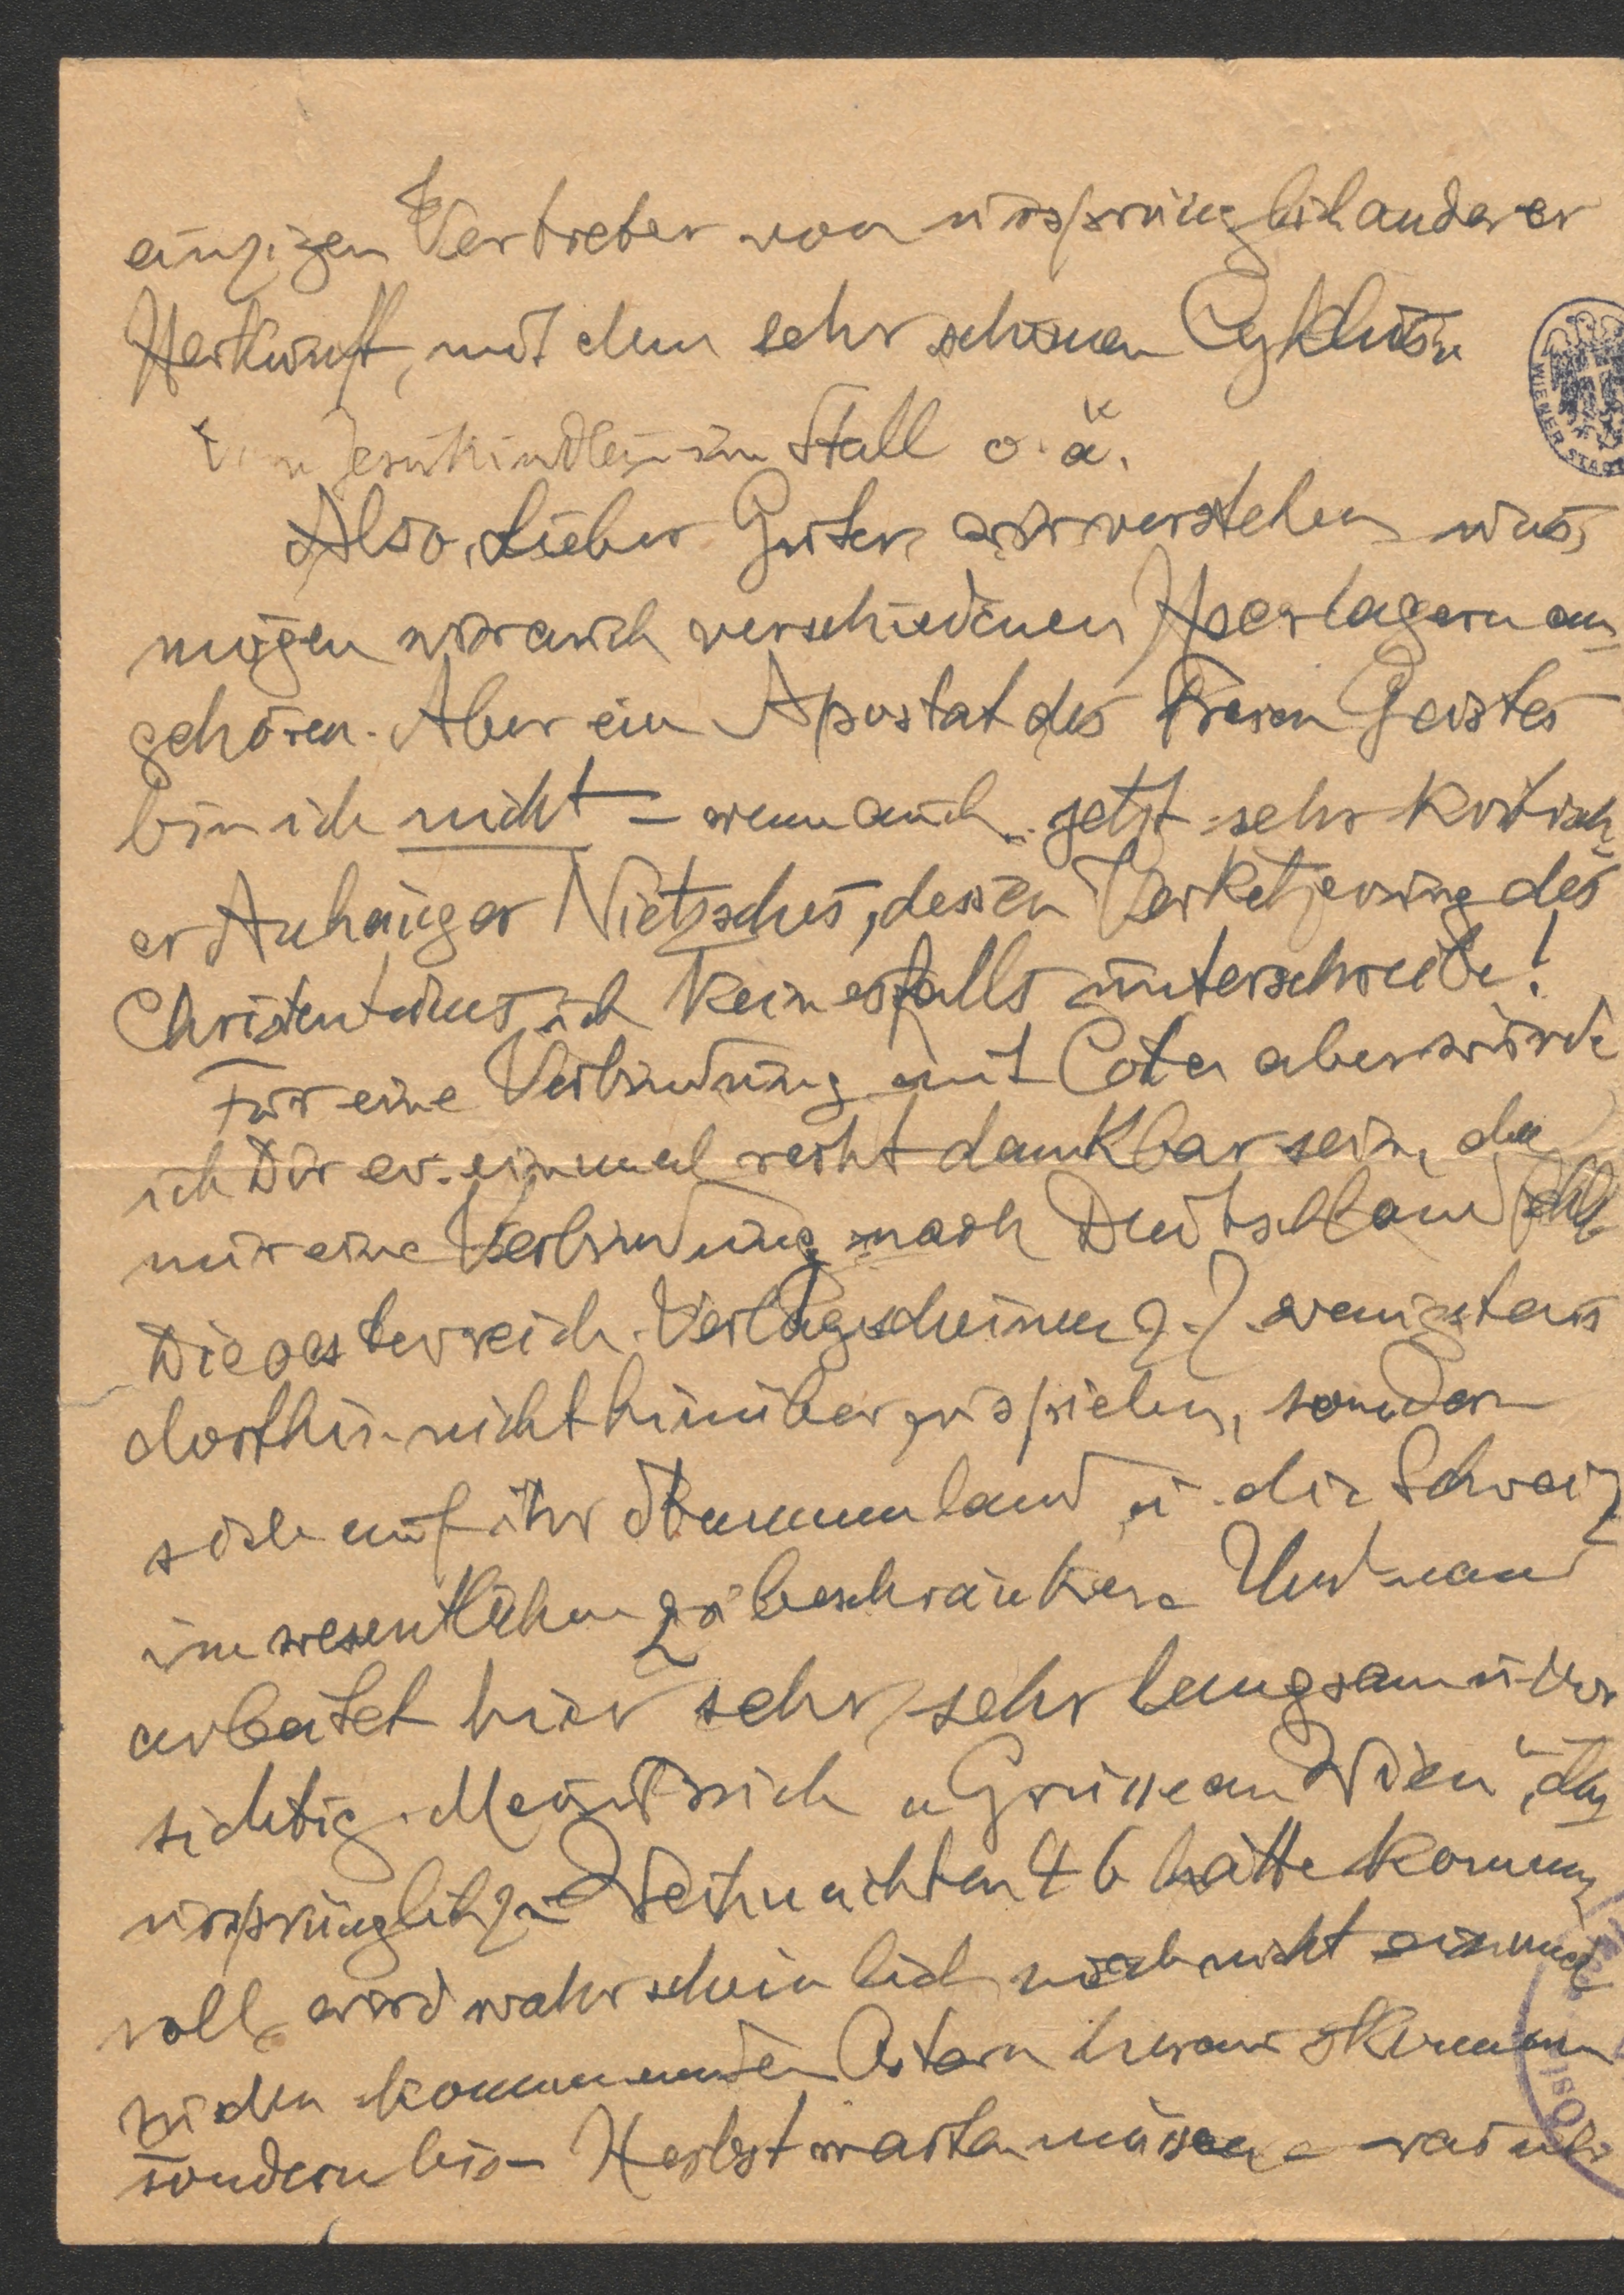 einzigen Vertreter von ursprünglich anderer
Herkunft, mit dem sehr schönen Cyklus
vom Jesukindlein im Stall o. ä.
Also, lieber Guter, wir verstehen uns,
mögen wir auch verschiedenen Heerlagern an-
gehören. Aber ein Apostat des Freien Geistes
bin ich nicht – wenn auch jetzt sehr kritisch-
er Anhänger Nietzsches, dessen Verketzerung des
Christentums ich keinesfalls unterschreibe!
Für eine Verbindung mit Cotta aber würde
ich Dir ev. einmal recht dankbar sein, da
mir eine Verbindung nach Deutschland fehlt.
Die oesterreich. Verlage scheinen z. Z. wenigstens
dorthin nicht hinüberzuspielen, sondern
sich auf ihr Stammland u. die Schweiz
im wesentlichen zu beschränken. Und man
arbeitet hier sehr, sehr langsam u. vor
sichtig. Mein Buch „Grüsse an Wien", das
ursprünglich zu Weihnachten 46 hätte kommen
soll, wird wahrscheinlich noch nicht einmal
zu den kommenden Ostern herauskommen
sondern bis Herbst warten müssen – was mir
WIENER STADT